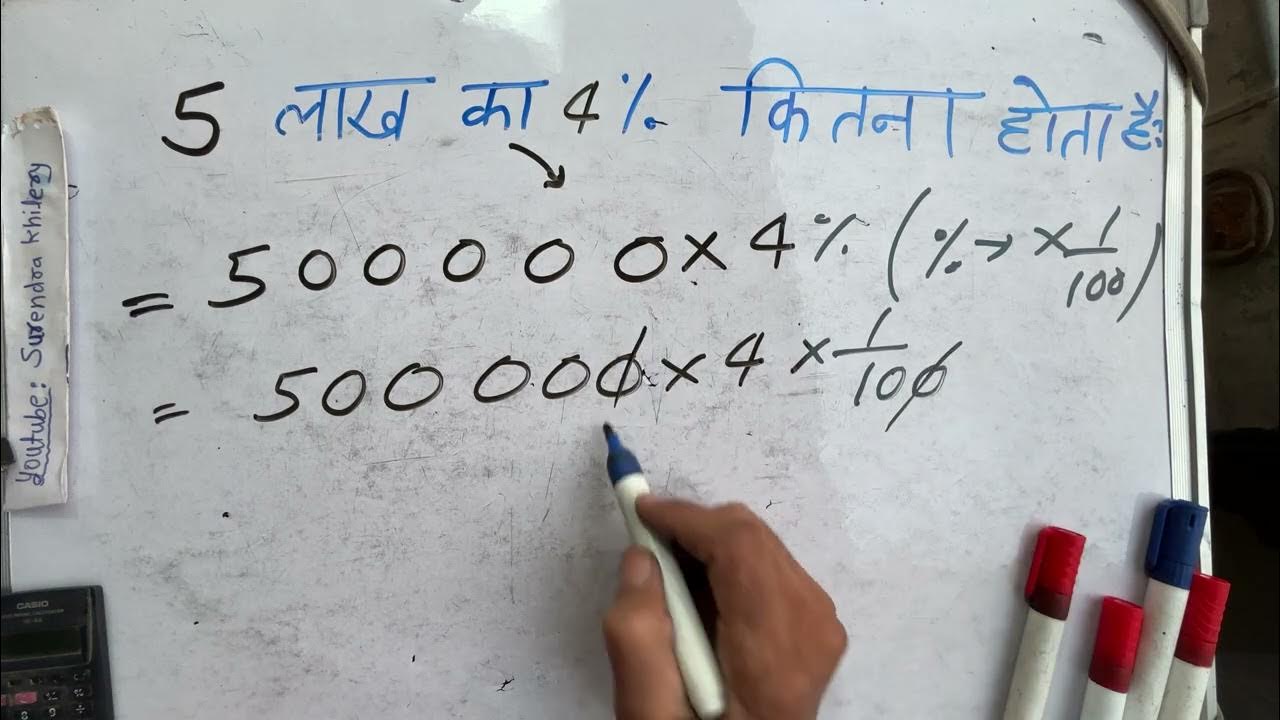 5 लाख का 4% कितना होता है?
= 500000 × 4% (% → × 1/100)
= 500000 × 4 × 1/100
Youtube: Surendra Khilery
CASIO